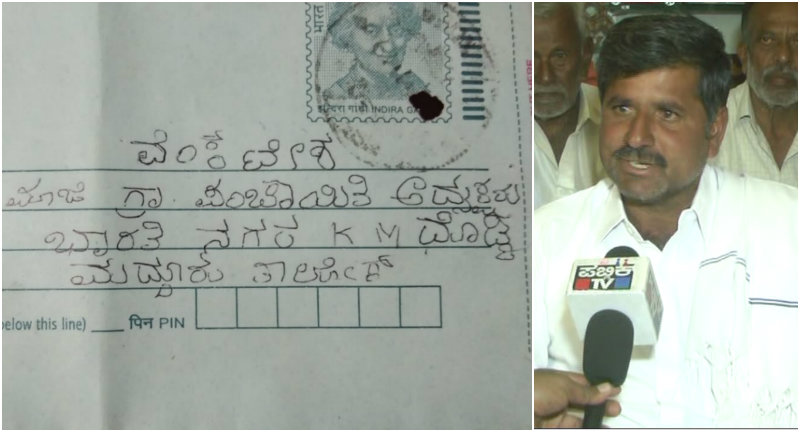 भारत
इन्दिरा गांधी INDIRA GA
ವೆಂಕಟೇಶ
ಮಾಜಿ ಗ್ರಾ ಪಂಚಾಯಿತಿ
ಭಾರತಿ ನಗರ K M ದೊಡ್ಡಿ
ಮದ್ದೂರು ತಾಲೂಕ್
below this line) पिन PIN
ಪಬ್ಲಿಕ್
TV